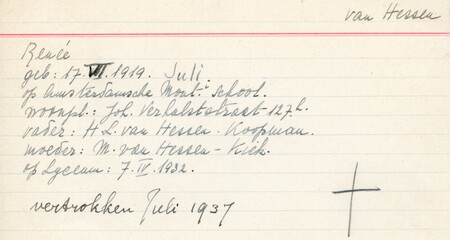 van Hessen
Renée
geb: 17. VII. 1919. Juli.
op Amsterdamsche Mont.i School.
woonpl.: Joh. Verhulststraat 127h.
vader: H.L. van Hessen - Koopman.
moeder: M. van Hessen - Kich.
op Lyceum: 7. IV. 1932.
vertrokken Juli 1937